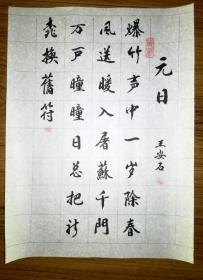 元日
王安石
爆竹声中一岁除春
风送暖入屠蘇千門
万户曈曈日总把新
桃換舊符